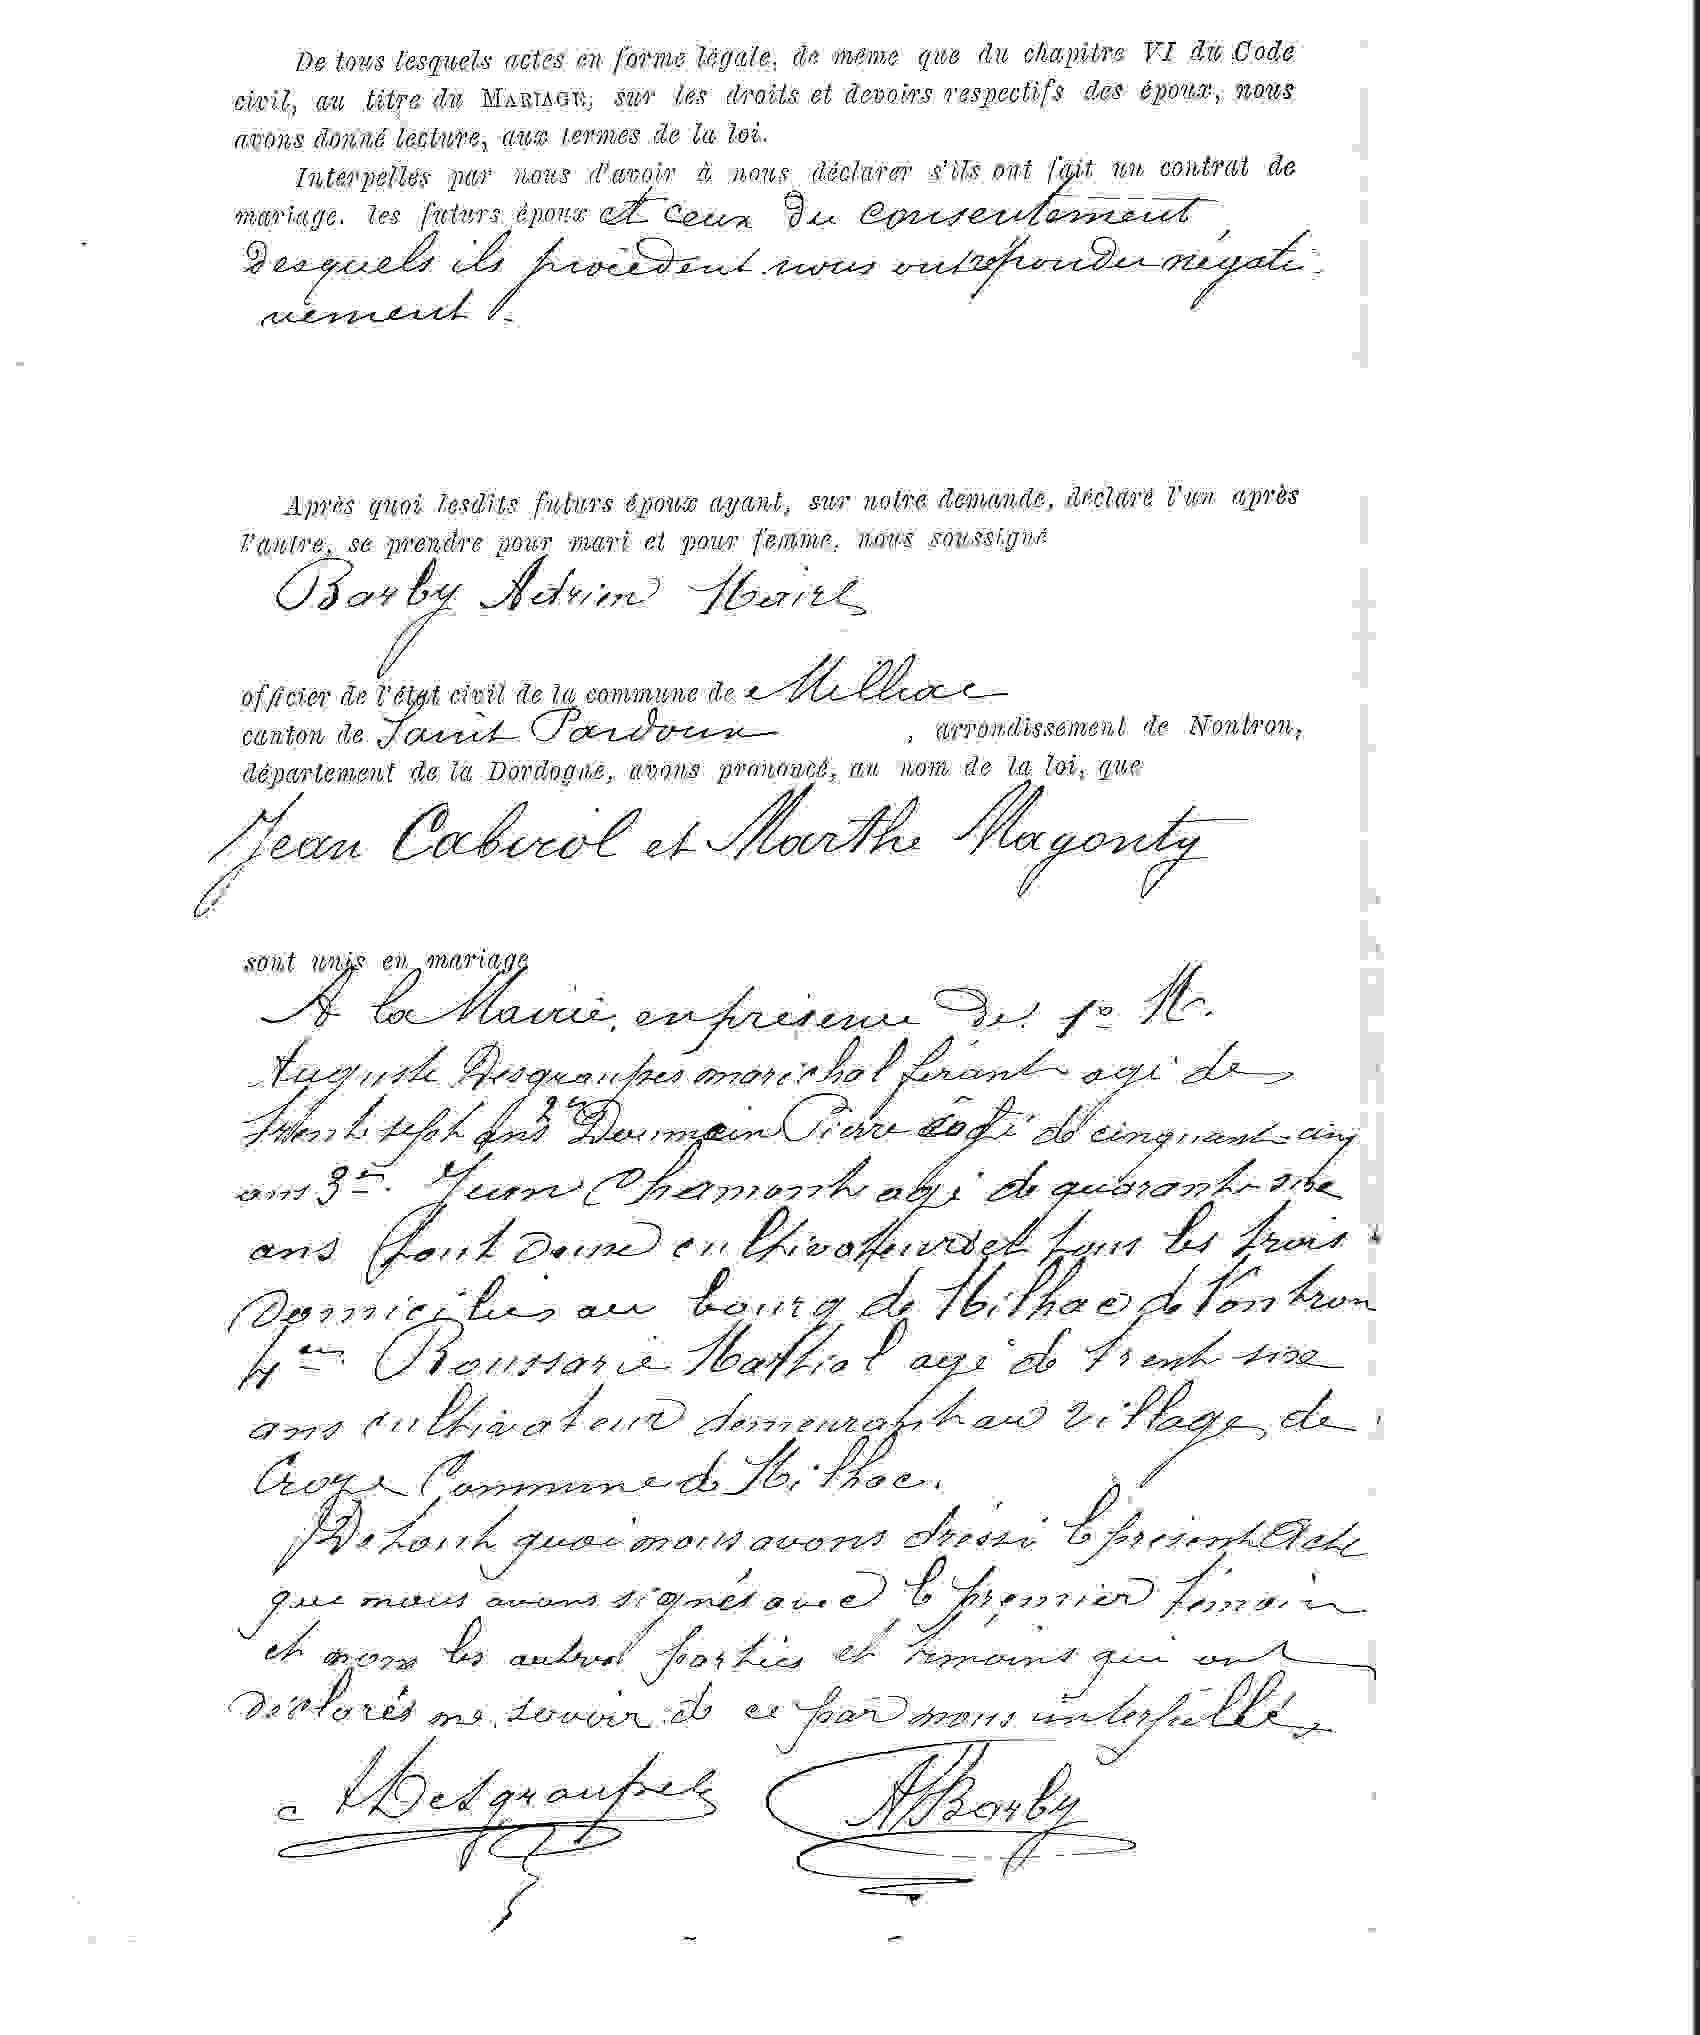 De tous lesquels actes en forme légale, de même que du chapitre VI du Code
civil, au titre du MARIAGE, sur les droits et devoirs respectifs des époux, nous
avons donné lecture, aux termes de la loi.
Interpellés par nous d'avoir à nous déclarer s'ils ont fait un contrat de
mariage. les futurs époux et ceux du consentement
desquels ils procèdent nous ont répondu négati-
vement.
Après quoi lesdits futurs époux ayant, sur notre demande, déclaré l'un après
l'autre, se prendre pour mari et pour femme, nous soussigné
Barby Adrien Maire
officier de l'état civil de la commune de Milhac
canton de Saint Pardoux , arrondissement de Nontron,
département de la Dordogne, avons prononcé, au nom de la loi, que
Jean Cabirol et Marthe Magonty
sont unis en mariage
A la Mairie, en présence de. 1º Mr.
Auguste Desgroupes maréchal férant agé de
trente sept ans 2en Doumein Pierre agé de cinquante-cinq
ans 3en. Jean Chamont agé de quarante sixe
ans tout deux cultivatteurs et tous les trois
domiciliés au bourg de Milhac de Nontron
4en Roussarie Martial agé de trente sixe
ans cultivateur demeurant au village de
Croze Commune de Milhac.
De tout quoi nous avons dressé le présent Acte
que nous avons signés avec le premier témoin
et non les autres parties et témoins qui ont
déclarés ne savoir de ce par nous interpellé,
ADesgroupes ABarby